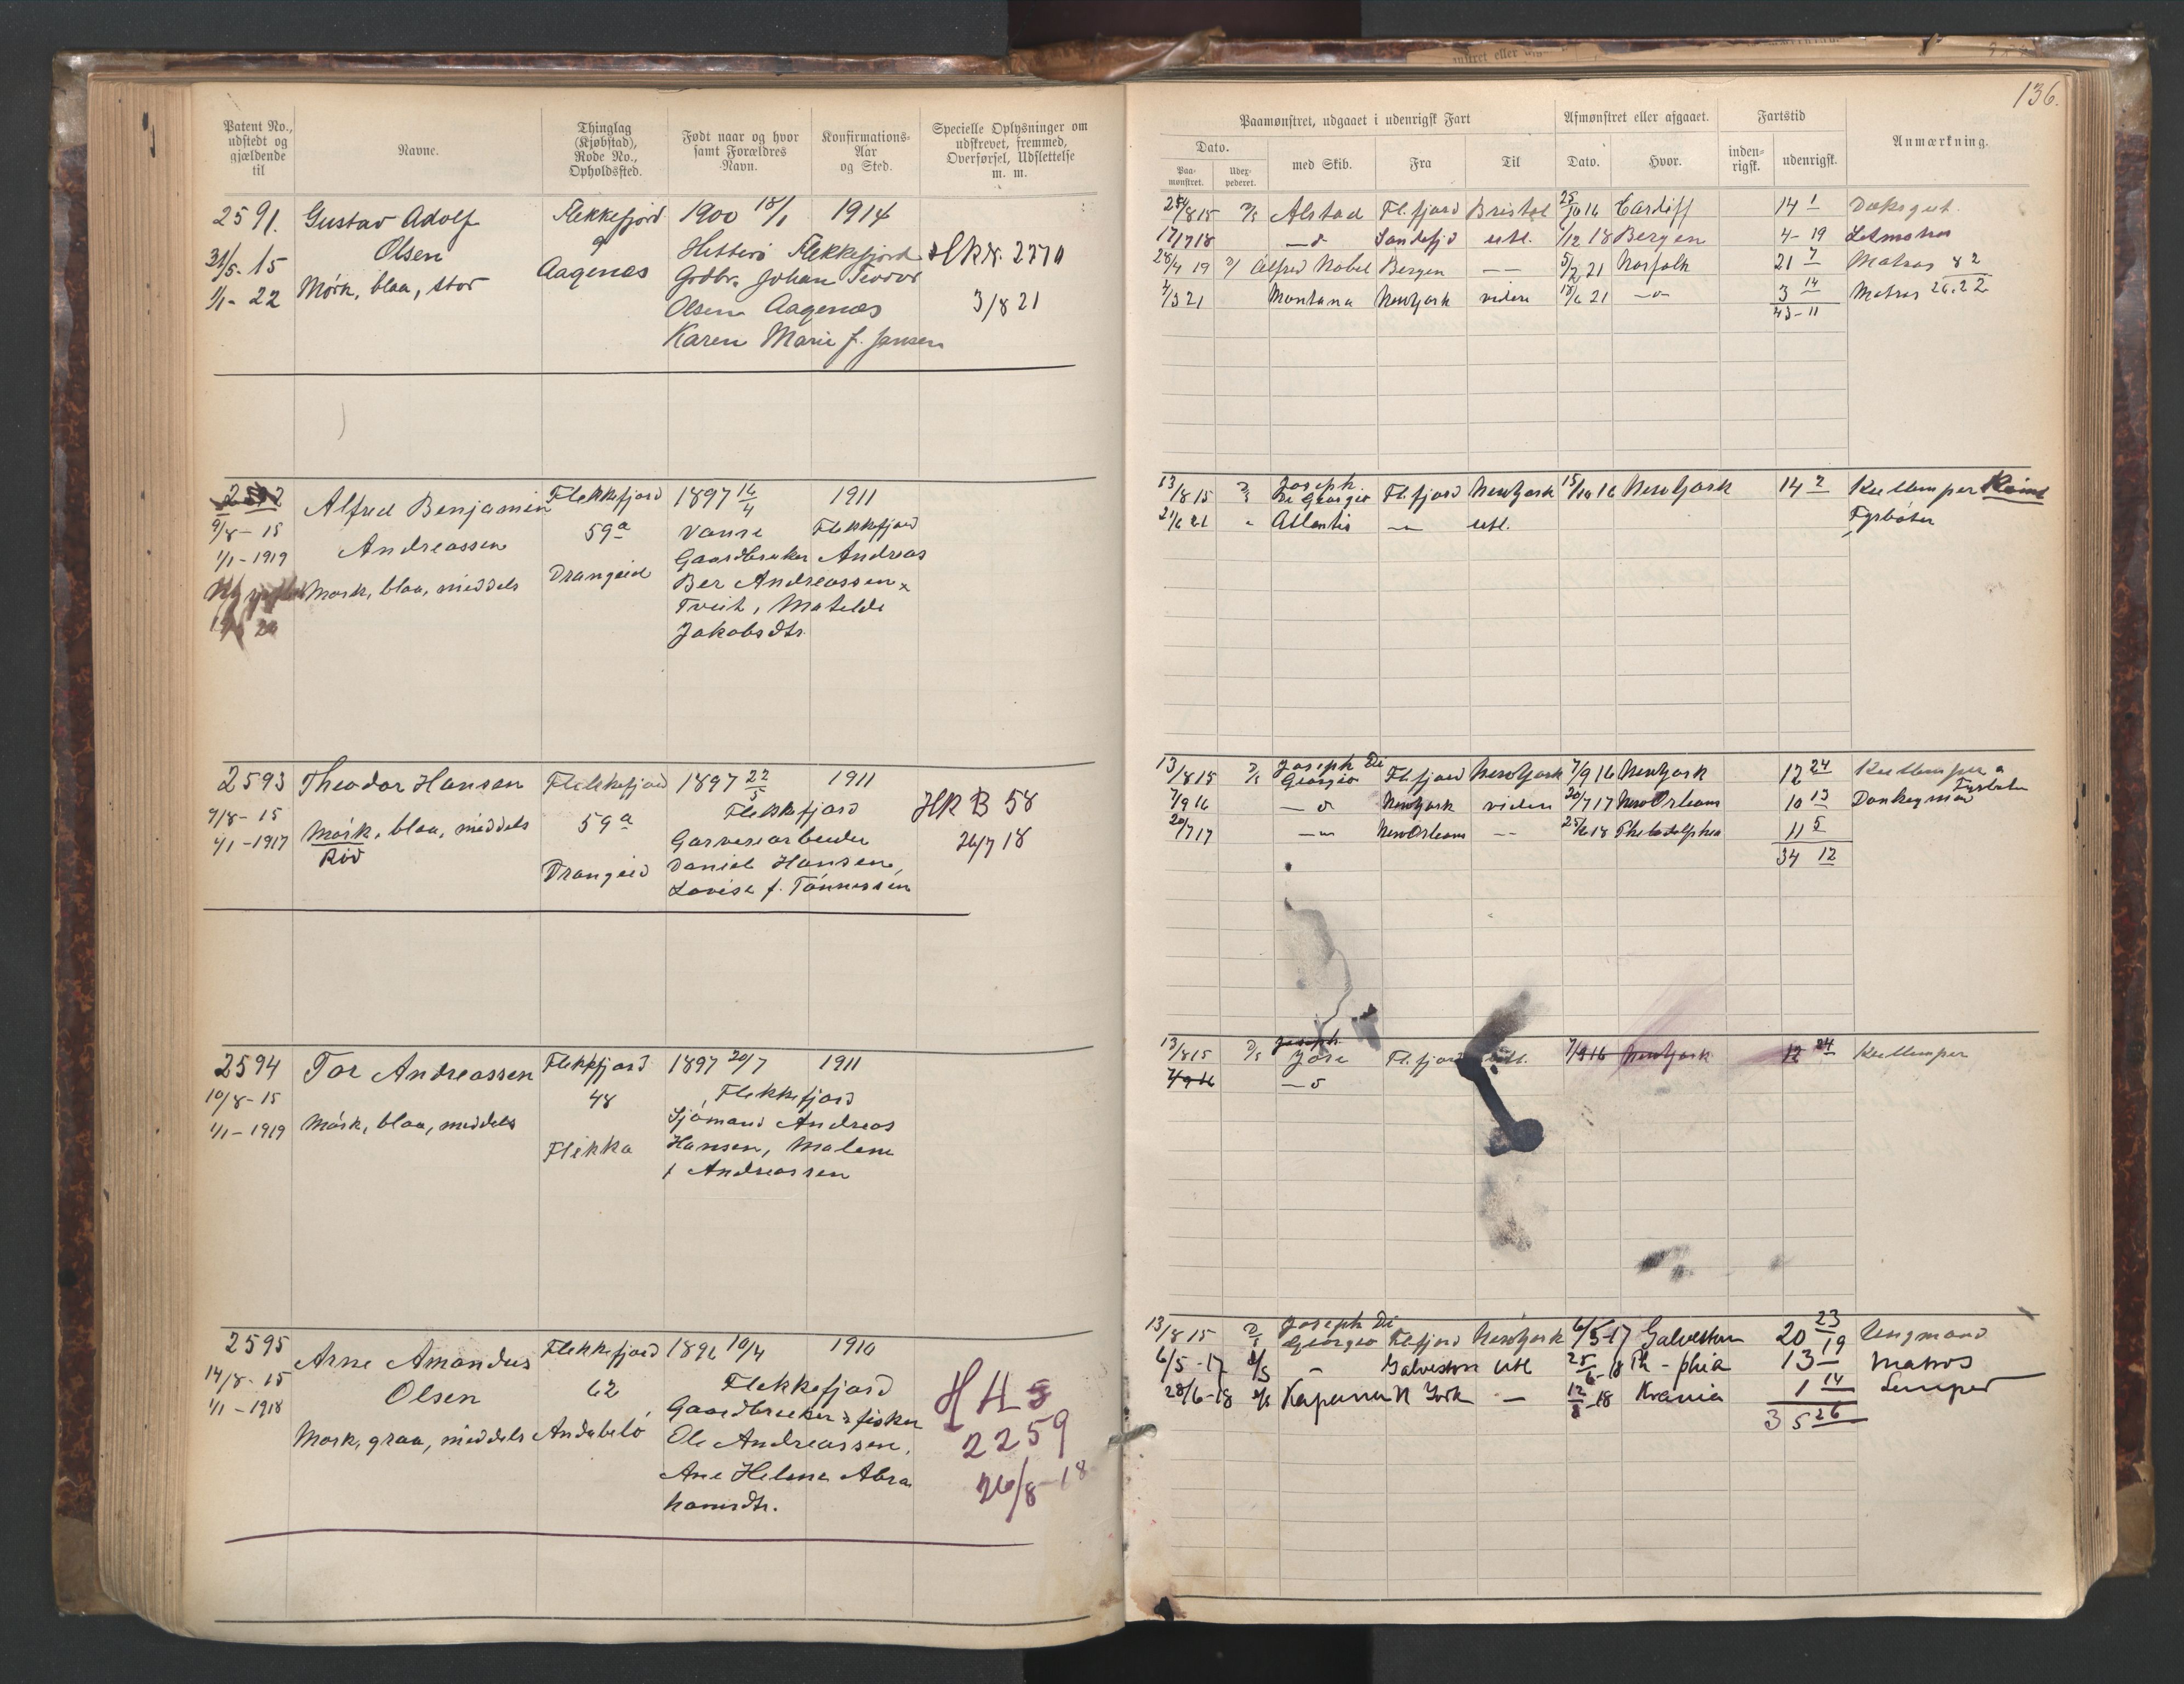 136.
Patent No., udstedt og gjældende til
Navne.
Thinglag (Kjøbstad), Rode No., Opholdssted.
Født naar og hvor samt Forældres Navn.
Konfirmations-Aar og Sted.
Specielle Oplysninger om udskrevet, fremmed, Overførsel, Udslettelse m. m.
Paamønstret, udgaaet i udenrigsk Fart
Afmønstret eller afgaaet.
Fartstid
Anmærkning.
Dato.
Paa-mønstret.
Udex-pederet.
med Skib.
Fra
Til
Dato.
Hvor.
inden-rigsk.
udenrigsk.
2591. Gustav Adolf Flekkefjord 1900 18/1 1914
Olsen 9 Hitterö Flekkefjord
31/5-15 Aagenæs Grdbr. Johan Teodor
1/1-22 Mörk, blaa, stor Olsen Aagenæs 3/8 21
Karen Marie f. Jansen
/8 15 D/s Alstad Fl.fjord Bristol 25/10 16 Cardiff 14 1 Dæksgut
17/7 18 —"— Sandefjd utl. /12 18 Bergen 4-19 Letmatros
28/4 19 D/ Alfred Nobel Bergen — — 5/2 21 Norfolk 21 7 Matros 82
4/3 21 Montana NewYork videre 18/6 21 —"— 3 14 Matros 26.22
43-11
2592 Alfred Benjamin Flekkefjord 1897 14/4 1911
9/8-15 Andreassen 59a Vanse Flekkefjord
1/1-1919 Gaardbruker Andreas
Mörk, blaa, middels Drangeid Ber Andreassen
Tveit, Matelde
Jakobsdtr.
13/8 15 D/s Joseph Di Georgio Fl.fjord NewYork 15/10 16 NewYork 14 2 Kullemper
21/6 21 " Atlantis —"— utl. Fyrböter
2593 Theodor Hansen Flekkefjord 1897 22/5 1911
9/8-15 59a Flekkefjord HR B 58
1/1-1917 Mörk, blaa, middels Garveriarbeider 26/7 18
Röd Drangeid Daniel Hansen,
Lovise f. Tönnessen
13/8 15 D/s Joseph Di Georgio Fl.fjord NewYork 7/9 16 NewYork 12 24 Kullemper a Fyrböter
7/9 16 —"— NewYork videre 20/7 17 NewOrleans 10 13 Donkeyman
20/7 17 —"— NewOrleans — — 25/6 18 Philadelphia 11 5
34 12
2594 Tor Andreassen Flekkefjord 1897 20/7 1911
10/8-15 48 Flekkefjord
1/1-1919 Mörk, blaa, middels Sjömand Andreas
Flikka Hansen, Malene
f Andreassen
13/8 15 D/s Joseph Fl.fjord utl. 7/9 16 NewYork 12 24 Kullemper
7/9 16 —"—
2595 Arne Amandus Flekkefjord 1896 10/4 1910
14/8-15 Olsen 62 Flekkefjord
1/1-1918 Gaardbruker & fisker
Mörk, graa, middels Andabelö Ole Andreassen, 2259
Ane Helene Abra 26/8-18
hamsdtr.
13/8 15 D/s Joseph Di Georgio Fl.fjord NewYork 6/5-17 Galveston 20 23 Ungmand
6/5-17 D/s " Galveston Utl 25/6-18 Ph-phia 13 19 Matros
28/6-18 D/s N York — 12/8-18 Krania 1 14 Lemper
35 26